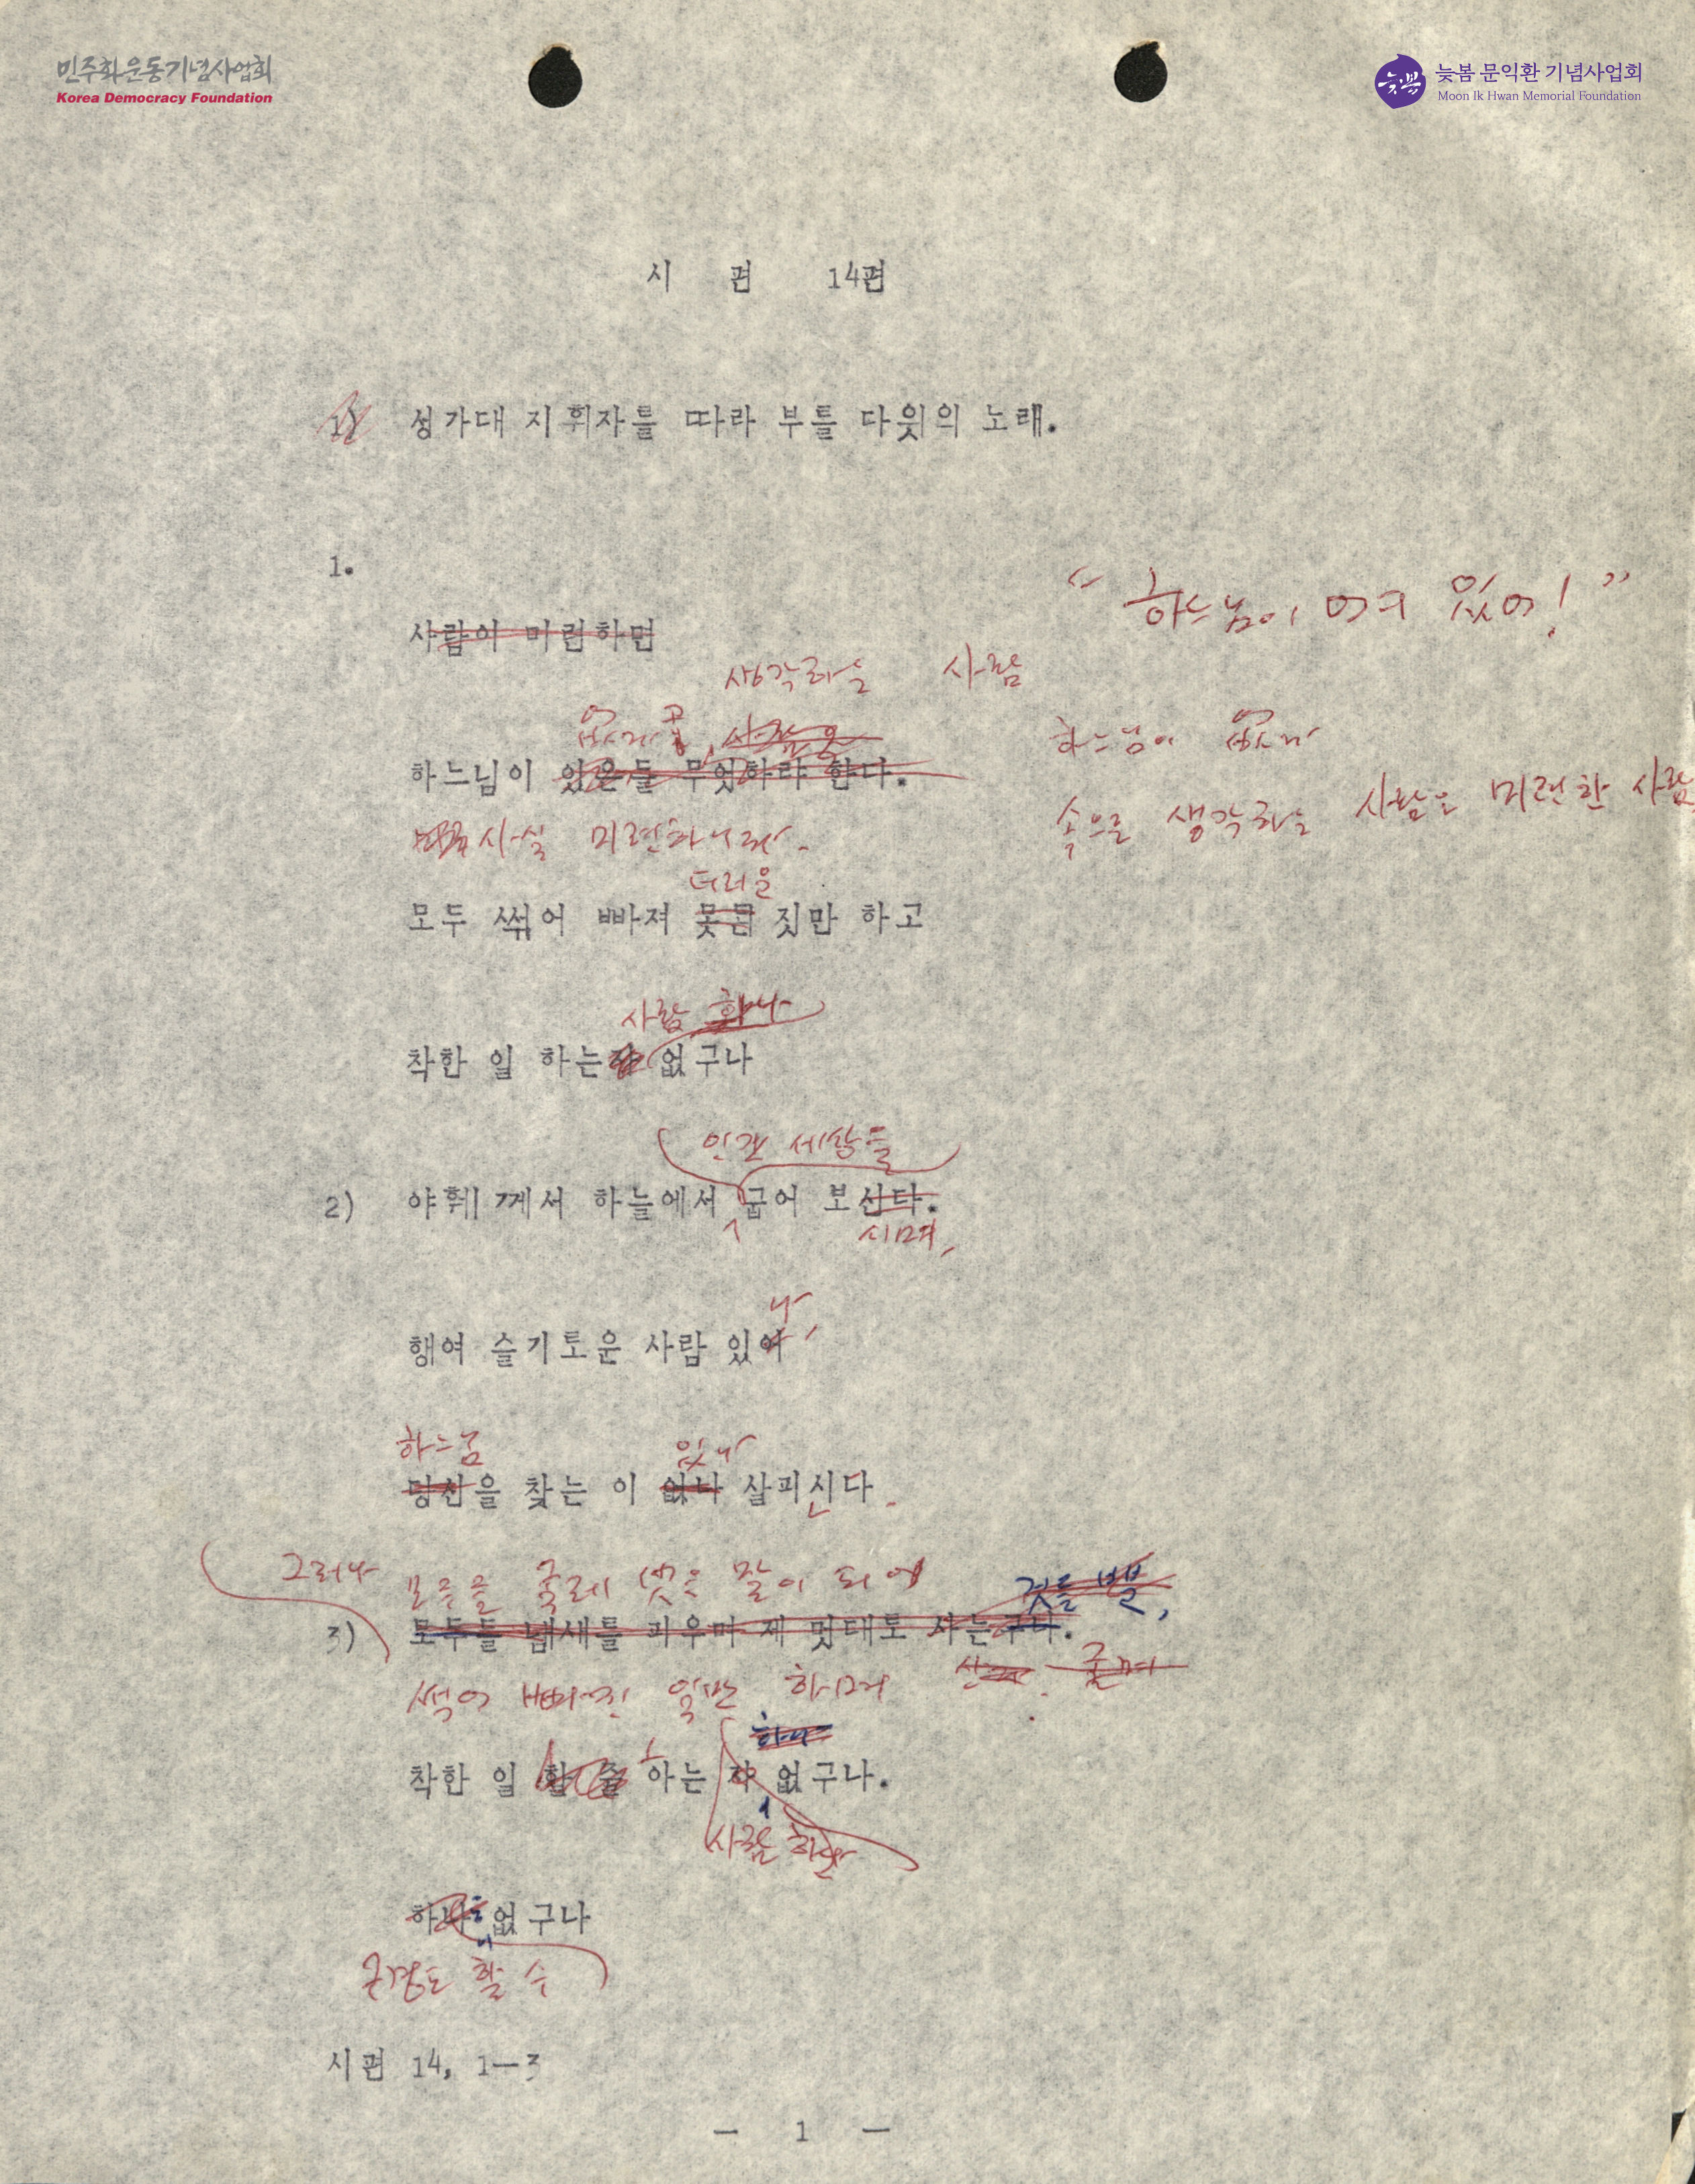 민주화운동기념사업회
Korea Democracy Foundation
늦봄
늦봄 문익환 기념사업회
Moon Ik Hwan Memorial Foundation
시 편 14편
1) 성가대 지휘자를 따라 부를 다윗의 노래.
1.
“ 하느님이 어려 있어! ”
사람이 미련하면
생각하는 사람
하느님이 없다
없다고, 사람은
하느님이 있은들 무엇하랴 한다.
속으로 생각하는 사람은 미련한 사람
사실 미련하여라.
더러운
모두 썪어 빠져 못된 짓만 하고
사람 하나
착한 일 하는 없구나
인간 세상을
2) 야훼께서 하늘에서 굽어 보신다.
시며,
나
행여 슬기로운 사람 있어
하느님 있나
당신을 찾는 이 없나 살피시다.
그러나 모두들 굴레 벗은 말이 되어 것을 뿐,
3) 모두들 냄새를 피우며 제 멋대로 사는구나.
썩어 빠진 일만 하며
하나
착한 일 할 줄 아는 자 없구나.
사람 하나
하나도 없구나
구경도 할 수
시편 14, 1—3
— 1 —